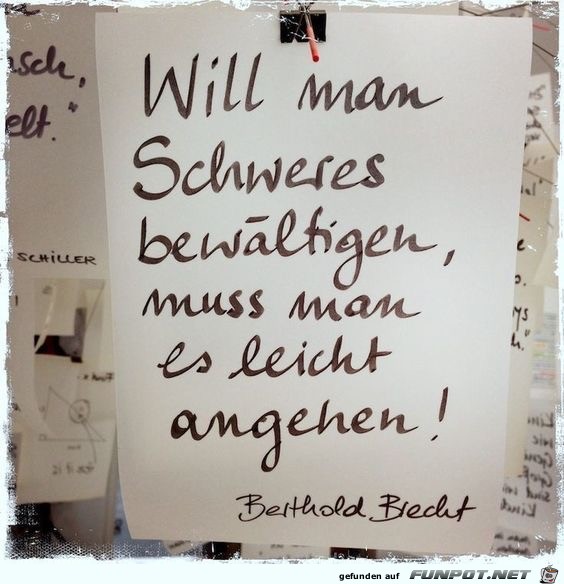 Will man
Schweres
bewältigen,
muss man
es leicht
angehen!
Berthold Brecht
asch,
elt."
SCHILLER
gefunden auf FUNPOT.NET